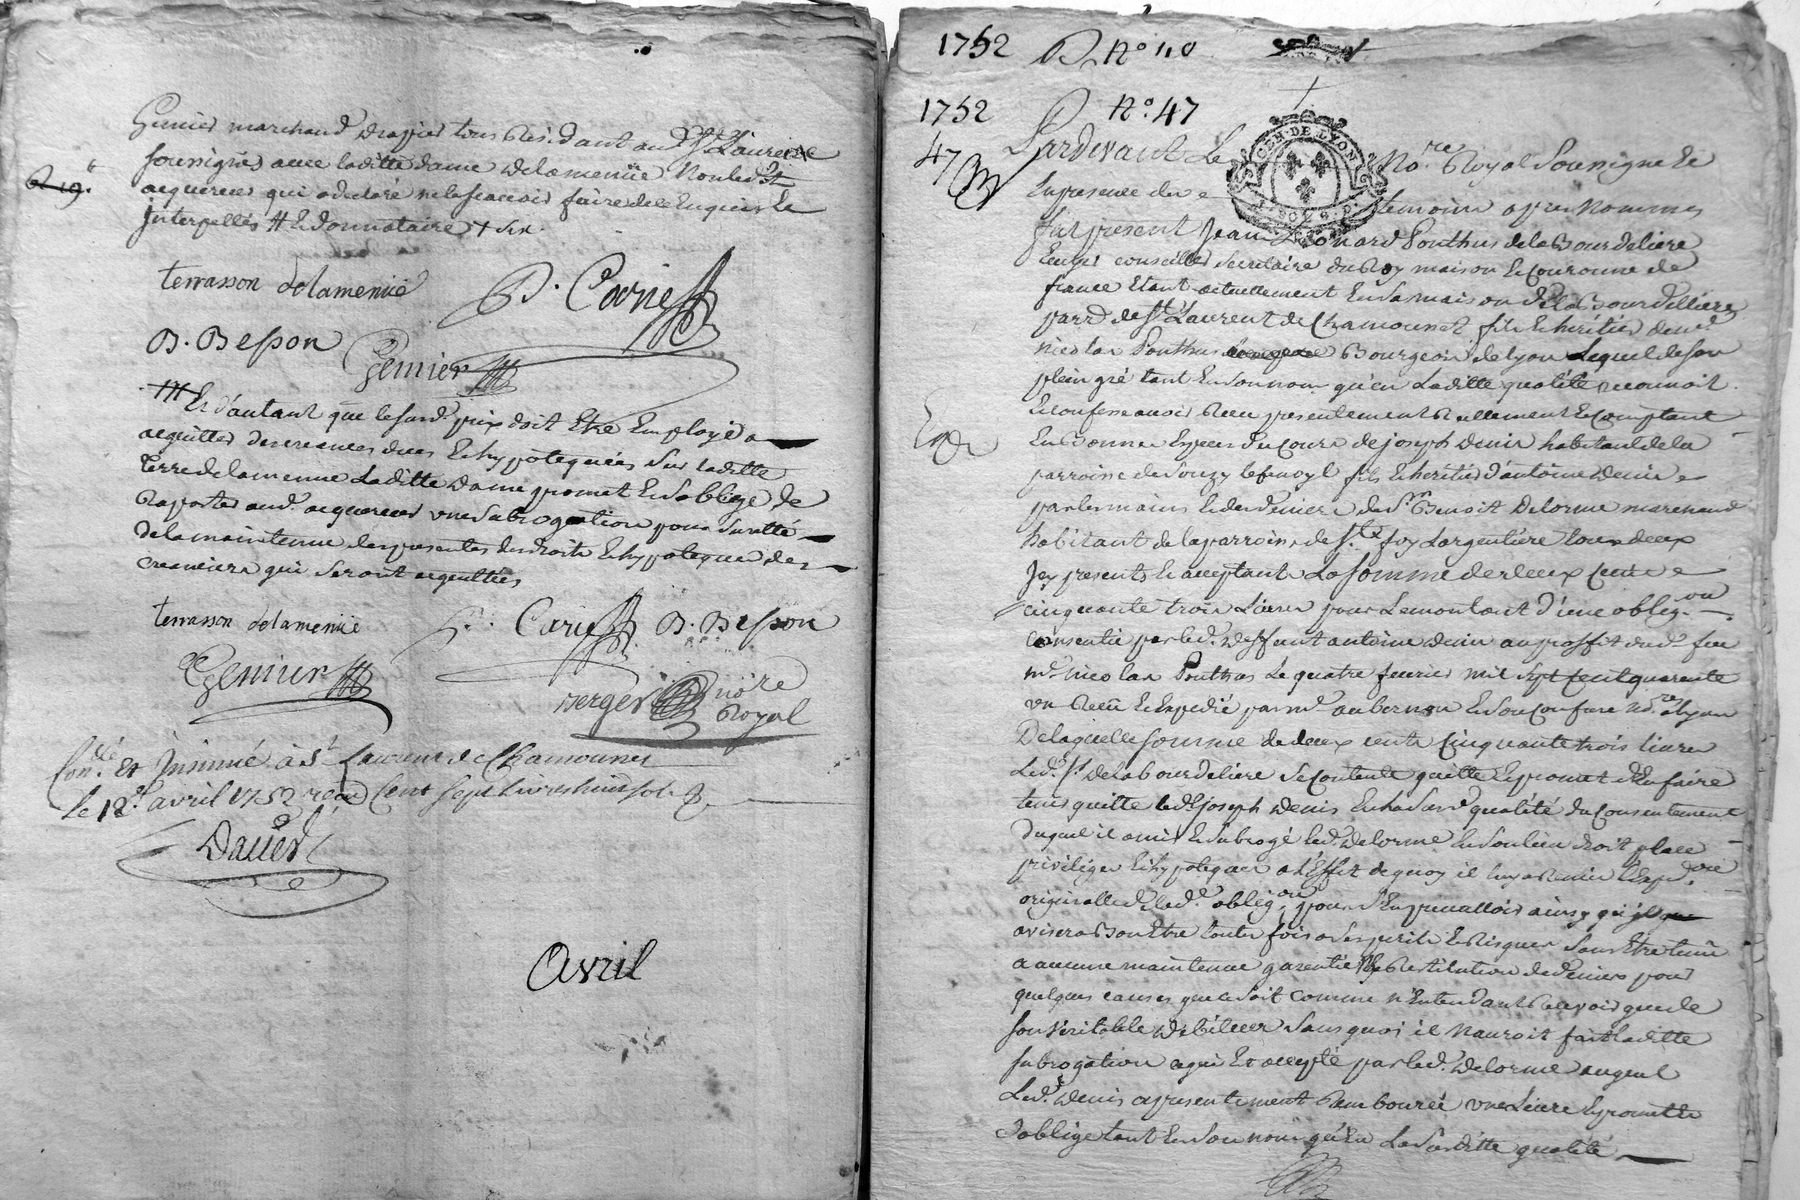 Genier marchand drapier tous residant aud St Laurent
soussignés avec laditte dame delamenüe Non led St
acquereur qui a declaré ne le scavoir faire de ce Enquis et
Interpellés # et donnataire + six
terrasson delamenüe
P. Carie
B. Besson
Genier
# Et d'autant que le surd. prix doit Etre Employé a
acquitter des creances dues et hypotequées sur laditte
terre de lamenue laditte dame promet et s'obblige de
raporter aud. acquereur une subrogation pour suretté
de la maintenue des presentes des droits et hypoteques des
creanciers qui seront acquittées
terrasson delamenüe
P. Carie B. Besson
Genier
Berger nore
Royal
Conlé Et Insinué à St Laurent de Chamousset
le 12e avril 1752 recu Cent sept livres huit sol
Daüer
Avril
1752 No 40
1752 No 47
47
Pardevant Le Nore Royal Soussigné et
En presence des temoins apres nommes
fut present Jean Leonard Ponthus de la Bourdeliere
Ecuyer conseiller secretaire du Roy maison et Couronne de
france Etant actuellement En sa maison de la Bourdelliere
parr. de St Laurent de Chamousset fils et heritier de mr
nicolas Ponthus Bourgeois de lyon Lequel de son
plein gré tant En son nom qu'en laditte qualité reconnoit
et confesse avoir receu presentement reellement et comptant
En bonnes Especes du cours de joseph denis habitant de la
parroisse de Souzy fils et heritier d'antoine denis
par les mains et des deniers de Sr Benoit Delorme marchand
habitant de la parroisse de Ste foy Largentiere tous deux
Icy presents et acceptant La somme de deux cents
cinquante trois Livres pour le montant d'une oblig.on
consentie par led. deffunt antoine denis au proffit dud. feu
mr nicolas Ponthus Le quatre fevrier mil sept cent quarante
un receu et Expedié par mr aubernon et son Confrere nores a lyon
De laquelle somme de deux cents cinquante trois livres
Led. Sr De la bourdeliere se contente quitte et promet d'En faire
tenir quitte led. joseph denis En sa surd. qualité du consentement
duquel il a mis et subrogé led. Delorme En son lieu droit place
privilege et hypoteque a l'Effet de quoy il luy a remis l'Expd.on
originalle de lad. oblig.on pour s'En prevalloir ainsy qu'il
avisera bon Etre toutes fois a ses perils et Risques sans Etre tenu
a aucune maintenue garentie restitution de deniers pour
quelques causes que ce soit comme n'Entendant recevoir que de
son veritable debiteur sans quoi il n'auroit fait laditte
subrogation ce qui Est accepté par led. Delorme auquel
Led. denis a presentement rembourcé une Livre et promet et
s'oblige tant En son nom qu'En La susditte qualité